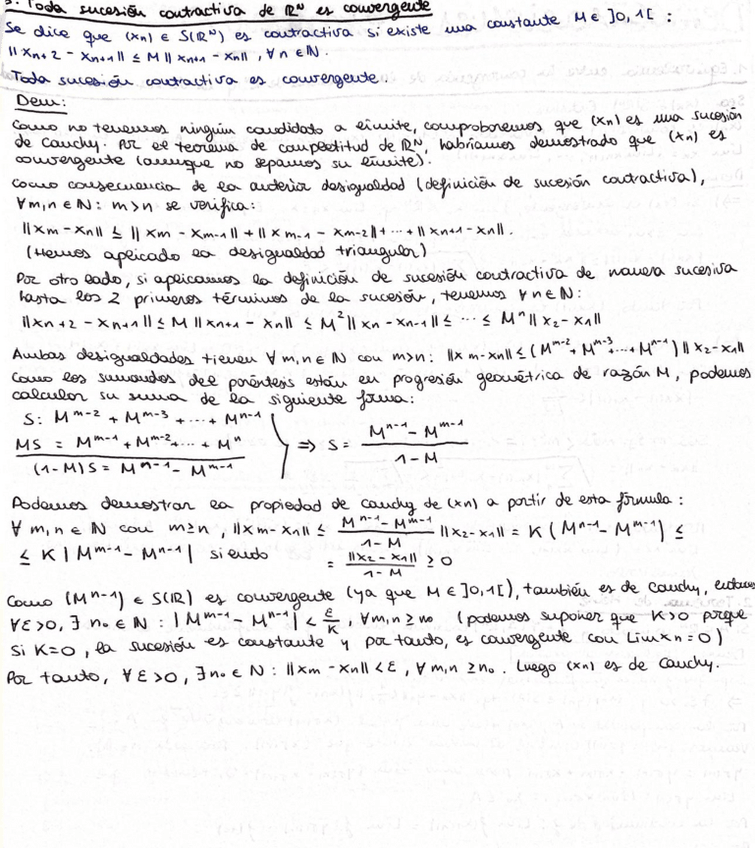 3. Toda sucesión contractiva de ℝᴺ es convergente
Se dice que (xn) ∈ S(ℝᴺ) es contractiva si existe una constante M ∈ ]0,1[ :
||xn+2 - xn+1|| ≤ M ||xn+1 - xn||, ∀n ∈ ℕ.
Toda sucesión contractiva es convergente.
Dem:
Como no tenemos ningún candidato a límite, comprobaremos que (xn) es una sucesión
de Cauchy. Por el teorema de completitud de ℝᴺ, habríamos demostrado que (xn) es
convergente (aunque no sepamos su límite).
Como consecuencia de la anterior desigualdad (definición de sucesión contractiva),
∀m,n ∈ ℕ: m>n se verifica:
||xm - xn|| ≤ ||xm - xm-1|| + ||xm-1 - xm-2|| + ... + ||xn+1 - xn||.
(Hemos aplicado la desigualdad triangular)
Por otro lado, si aplicamos la definición de sucesión contractiva de manera sucesiva
hasta los 2 primeros términos de la sucesión, tenemos ∀n∈ℕ:
||xn+2 - xn+1|| ≤ M ||xn+1 - xn|| ≤ M² ||xn - xn-1|| ≤ ... ≤ Mⁿ ||x2 - x1||
Ambas desigualdades tienen ∀m,n∈ℕ con m>n: ||xm-xn|| ≤ (M^m-2 + M^m-3 + ... + M^n-1) ||x2-x1||
Como los sumandos del paréntesis están en progresión geométrica de razón M, podemos
calcular su suma de la siguiente forma:
S: M^m-2 + M^m-3 + ... + M^n-1
MS = M^m-1 + M^m-2 + ... + M^n
(1-M)S = M^n-1 - M^m-1 ⇒ S = (M^n-1 - M^m-1) / (1-M)
Podemos demostrar la propiedad de Cauchy de (xn) a partir de esta fórmula:
∀m,n ∈ ℕ con m≥n, ||xm-xn|| ≤ (M^n-1 - M^m-1) / (1-M) ||x2-x1|| = K (M^n-1 - M^m-1) ≤
≤ K |M^m-1 - M^n-1| siendo = ||x2-x1|| / (1-M) ≥ 0
Como (M^n-1) ∈ S(ℝ) es convergente (ya que M ∈ ]0,1[), también es de Cauchy, entonces
∀ε>0, ∃ n₀ ∈ ℕ : |M^m-1 - M^n-1| < ε/K, ∀m,n ≥ n₀ (podemos suponer que K>0 porque
si K=0, la sucesión es constante y por tanto, es convergente con Lim xn = 0)
Por tanto, ∀ε>0, ∃n₀ ∈ ℕ : ||xm - xn|| < ε, ∀m,n ≥ n₀. Luego (xn) es de Cauchy.